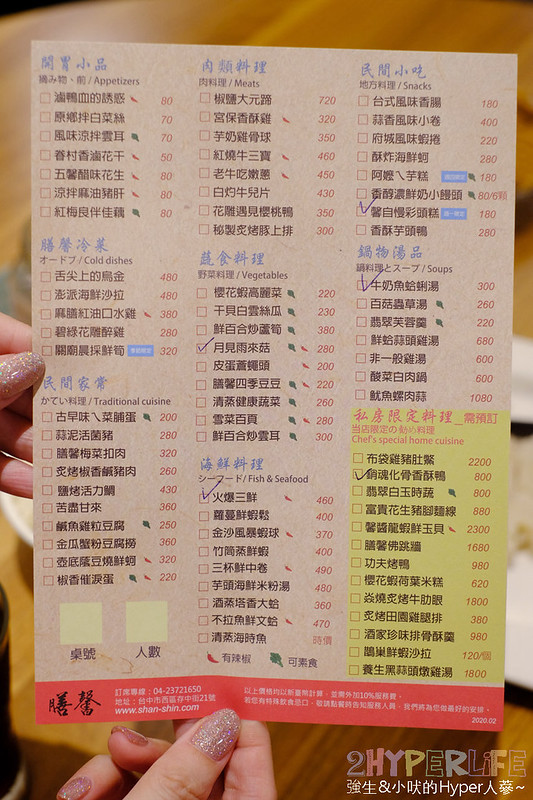 開胃小品
摘み物、前 / Appetizers
滷鴨血的誘惑 80
原鄉拌白菜絲 70
風味涼拌雲耳 70
眷村香滷花干 50
五馨醋味花生 50
涼拌麻油豬肝 80
紅梅良伴佳藕 80
膳馨冷菜
オードブ / Cold dishes
舌尖上的烏金 480
澎派海鮮沙拉 480
麻膳紅油口水雞 380
碧綠花雕醉雞 280
關廟晨採鮮筍 320
民間家常
かてい料理 / Traditional cuisine
古早味ㄟ菜脯蛋 200
蒜泥活菌豬 280
膳馨梅菜扣肉 320
炙烤椒香鹹豬肉 260
鹽烤活力鯛 430
苦盡甘來 360
鹹魚雞粒豆腐 250
金瓜蟹粉豆腐撈 360
壺底蔭豆燒鮮蚵 320
椒香催淚蛋 220
桌號
人數
肉類料理
肉料理 / Meats
椒鹽大元蹄 720
宮保香酥雞 320
芋奶雞骨球 350
紅燒牛三寶 460
老牛吃嫩蔥 450
白灼牛兒片 430
花雕遇見櫻桃鴨 350
秘製炙烤豚上排 300
蔬食料理
野菜料理 / Vegetables
櫻花蝦高麗菜 220
干貝白雲絲瓜 230
鮮百合炒蘆筍 380
月見雨來菇 280
皮蛋蒼蠅頭 200
膳馨四季豆豆 220
清蒸健康蔬菜 260
雪菜百頁 280
鮮百合炒雲耳 300
海鮮料理
シーフード/ Fish & Seafood
火爆三鮮 460
蘿蔓鮮蝦鬆 400
金沙風暴蝦球 370
竹筒蒸鮮蝦 400
三杯鮮中卷 490
芋頭海鮮米粉湯 480
酒蒸塔香大蛤 360
不拉魚鮮文蛤 470
清蒸海時魚 時價
有辣椒
可素食
民間小吃
地方料理 / Snacks
台式風味香腸 180
蒜香風味小卷 400
府城風味蝦捲 220
酥炸海鮮蚵 280
阿嬤ㄟ芋糕 180
香醇濃鮮奶小饅頭 80/6顆
馨自慢彩頭糕 180
香酥芋頭鴨 280
鍋物湯品
鍋料理とスープ / Soups
牛奶魚蛤蜊湯 300
百菇蟲草湯 260
翡翠芙蓉羹 220
鮮蛤蒜頭雞湯 680
非一般雞湯 600
酸菜白肉鍋 600
魷魚螺肉蒜 1080
私房限定料理_需預訂
当店限定の勧め料理
Chef's special home cuisine
布袋雞豬肚鱉 2200
銷魂化骨香酥鴨 800
翡翠白玉時蔬 800
富貴花生豬腳麵線 880
馨醬龍蝦鮮玉貝 2300
膳馨佛跳牆 1680
功夫烤鴨 980
櫻花蝦荷葉米糕 620
焱燒炙烤牛肋眼 1800
炙烤田園雞腿排 380
酒家珍味排骨酥羹 980
鵲巢鮮蝦沙拉 120/個
養生黑蒜頭燉雞湯 1800
膳馨
訂席專線：04-23721650
地址：台中市西區存中街21號
www.shan-shin.com
以上價格均以新臺幣計算，並需外加10%服務費。
若您有特殊飲食忌口，敬請點餐時告知服務人員，我們將為您做最好的安排。
2020.02
2HYPERLIFE
強生&小吠的Hyper人蔘~